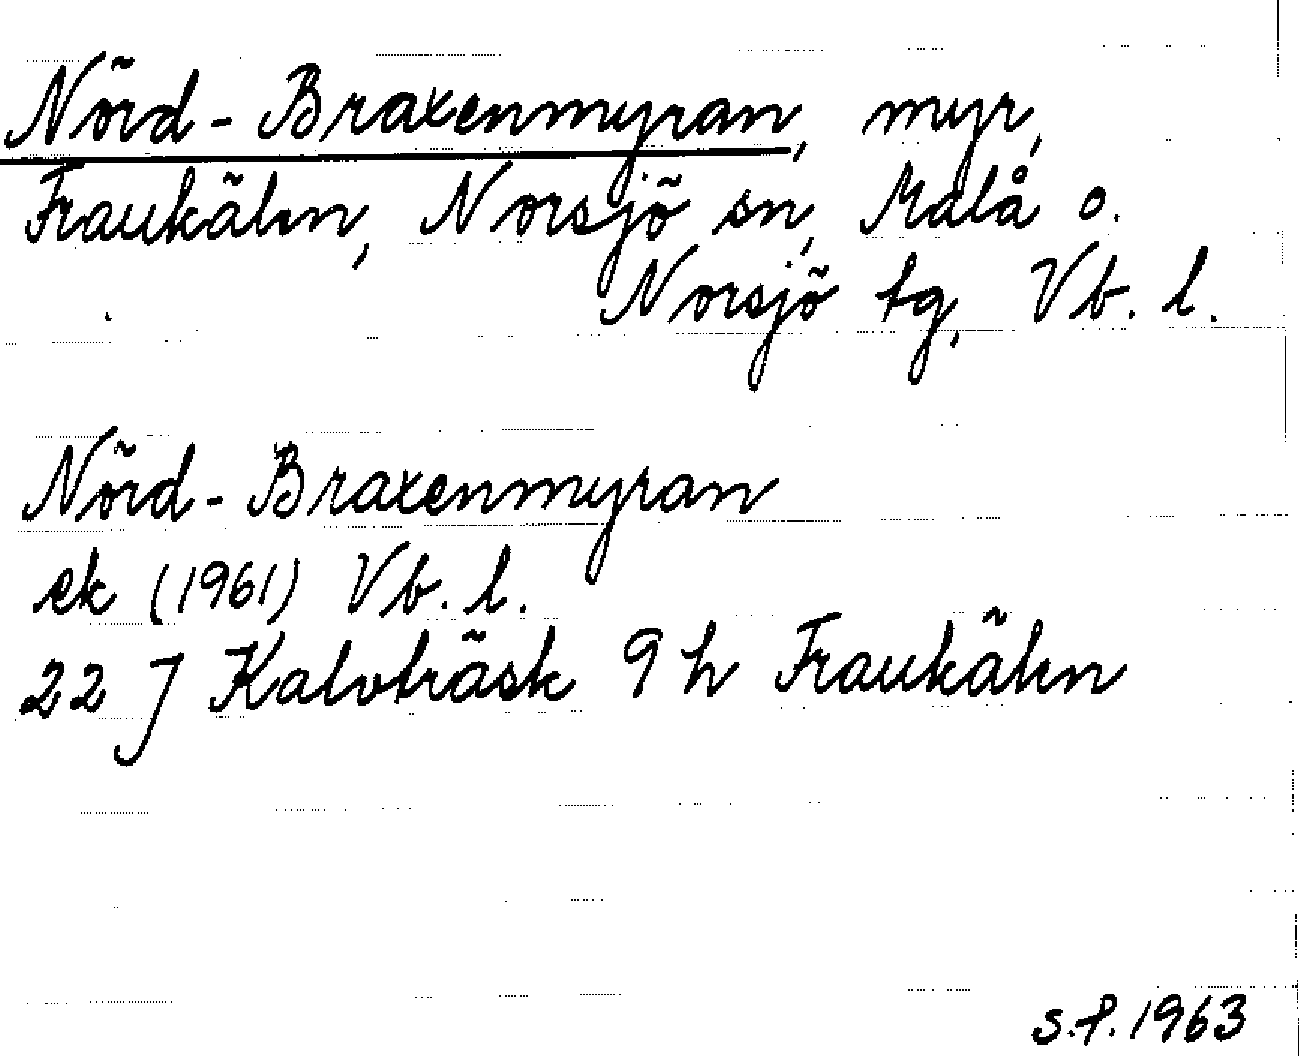 Nörd-Braxenmyran, myr,
Fraukälen, Norsjö sn, Malå o.
Norsjö tg, Vb. l.
Nörd-Braxenmyran
ek (1961) Vb. l.
22 J Kalvträsk 9 h Fraukälen
s.f. 1963